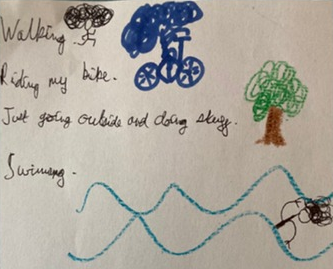 Walking.
Riding my bike.
Just going outside and doing stuff.
Swimming.